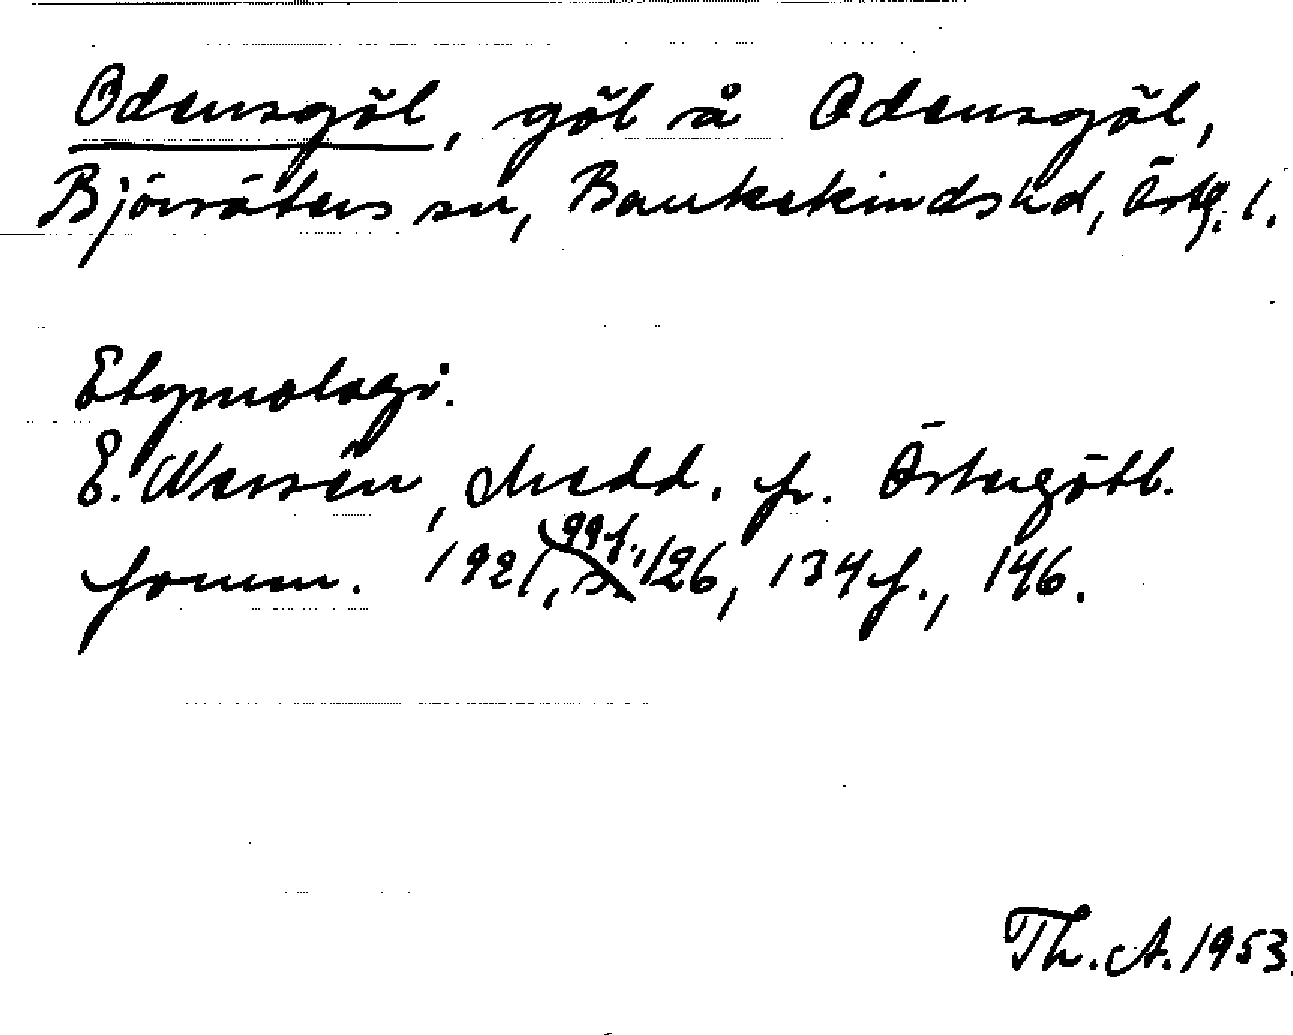 Odensgöl, göl å Odensgöl,
Björsäters sn, Bankekinds hd, Östg. l.
Etymologi.
E. Wessén, Medd. fr. Östergötl.
fornm. 1921, s. 99f., 126, 134f., 146.
Th. A. 1953.